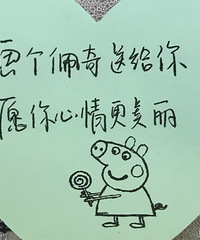 画个佩奇送给你
愿你心情更美丽